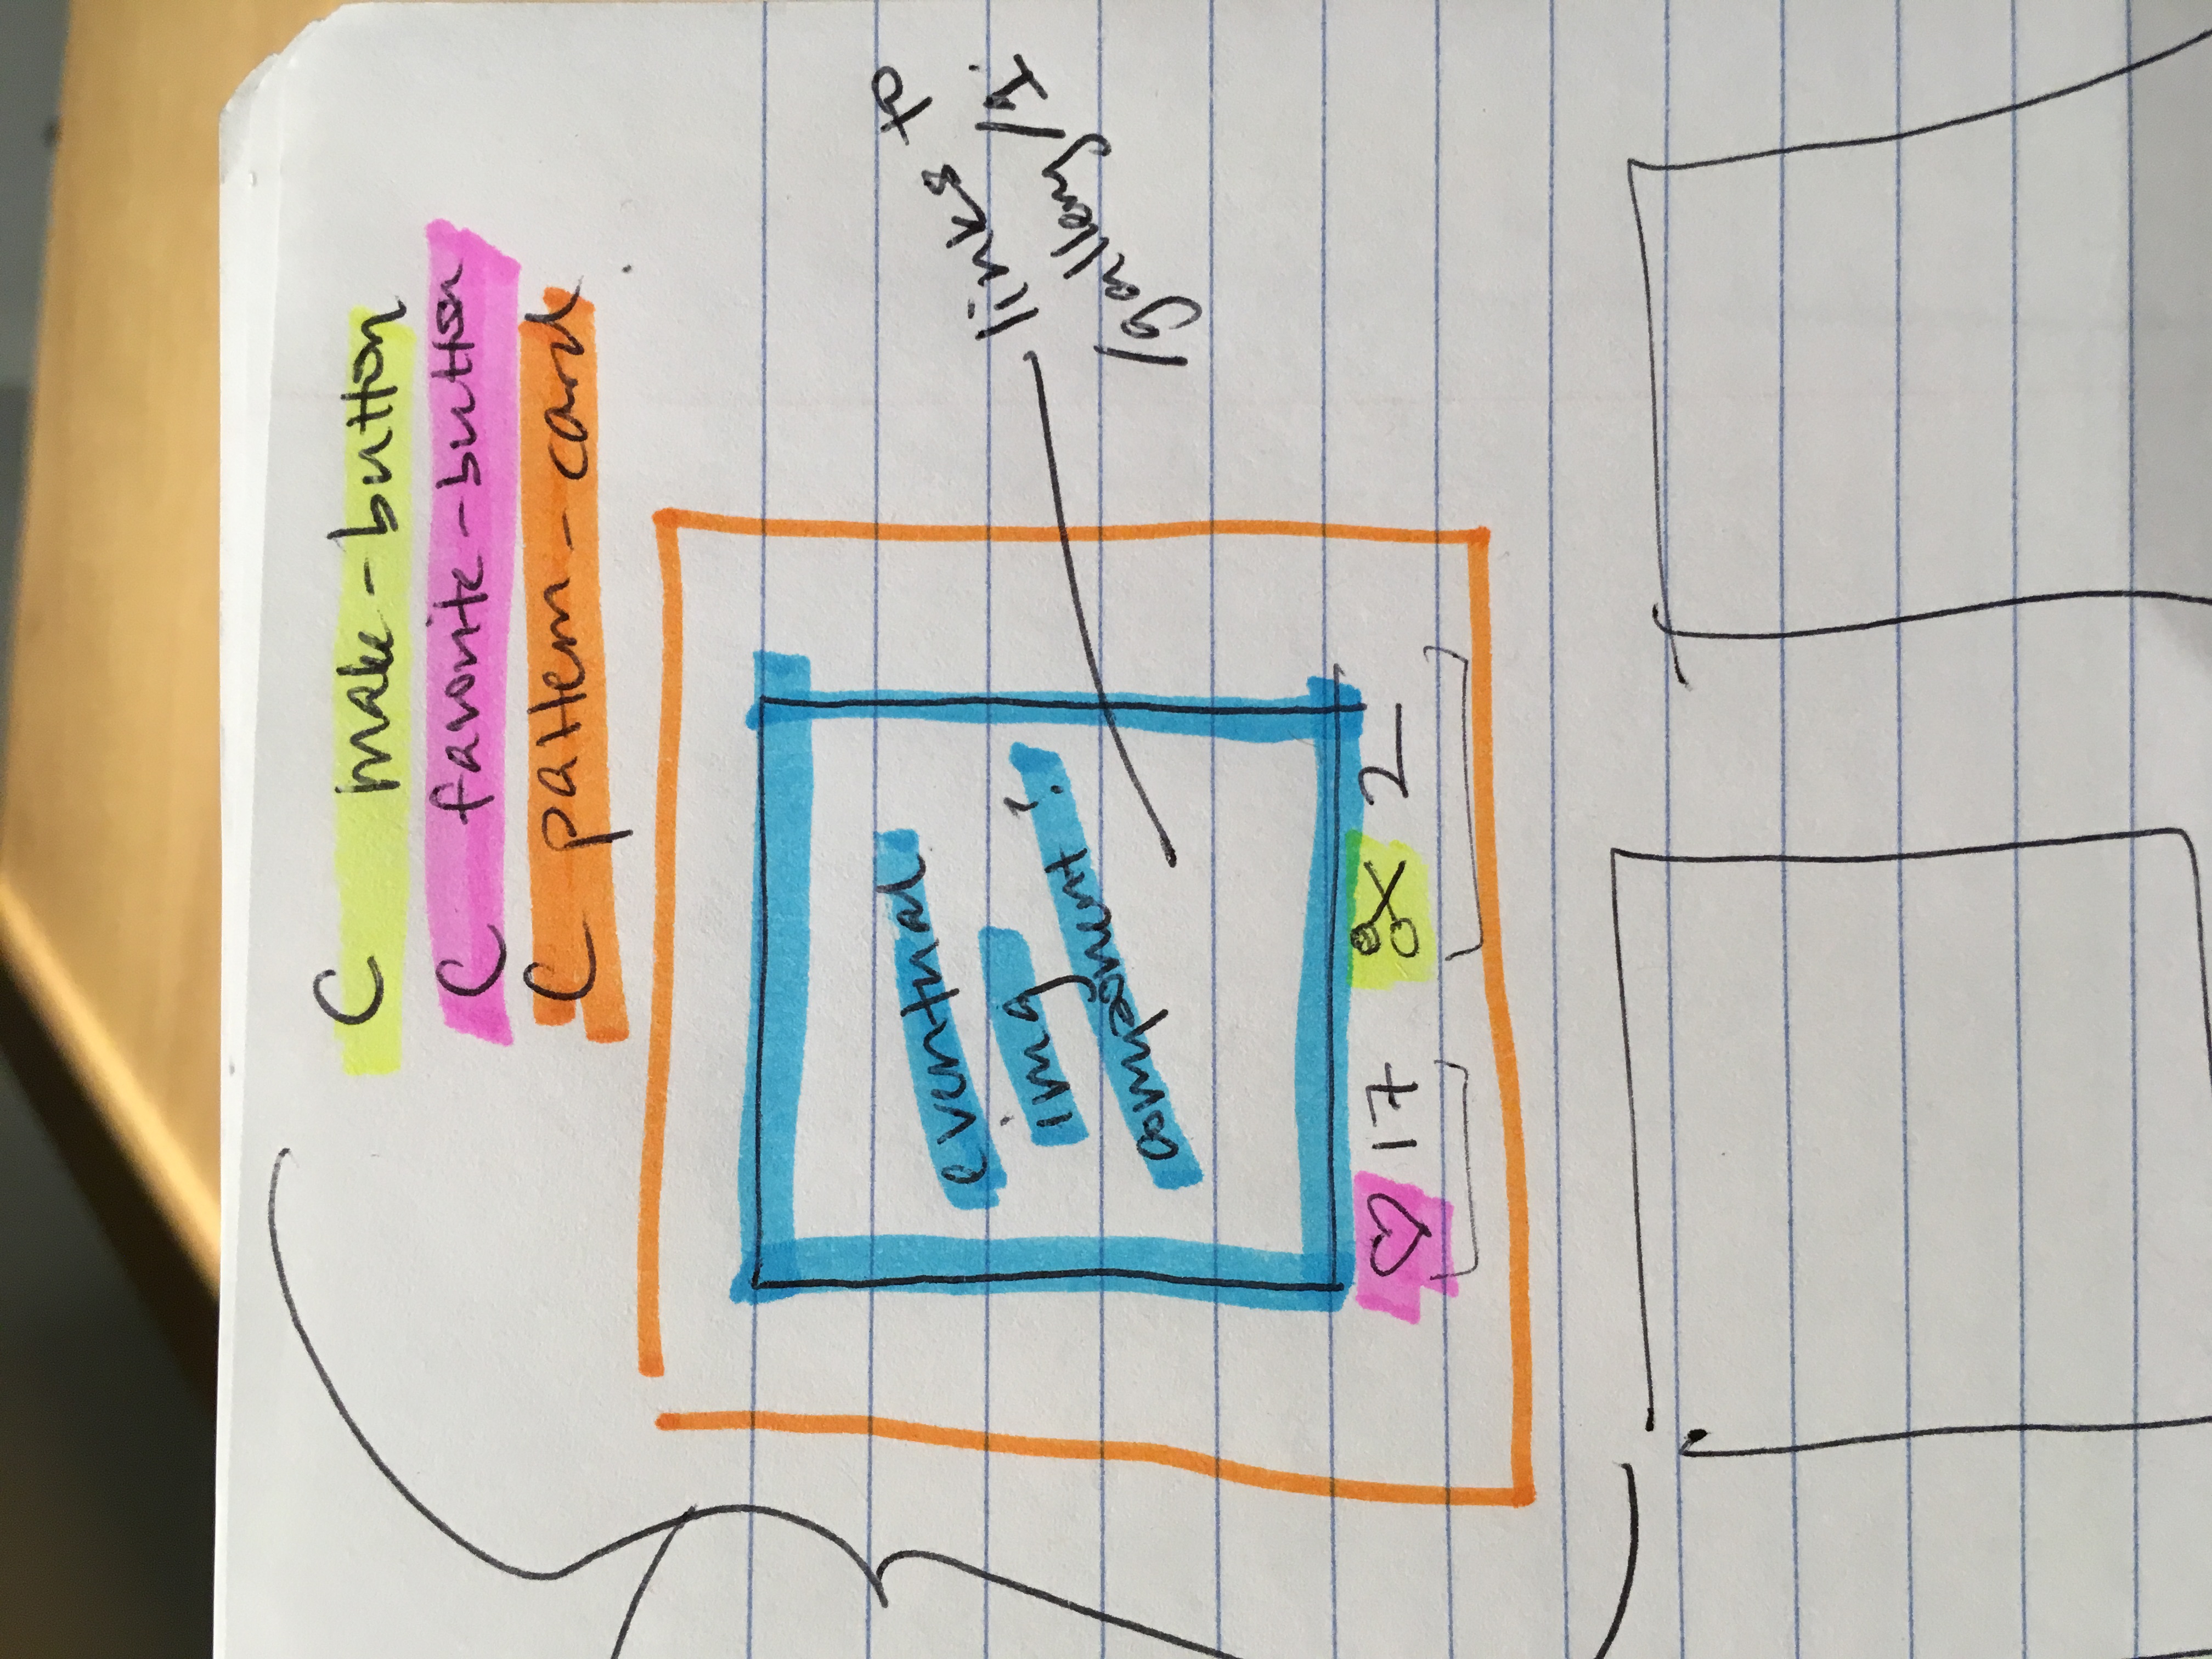 C make-button
C favorite-button
C pattern-card
eventual
img
component?
links to
/gallery/1
17 2